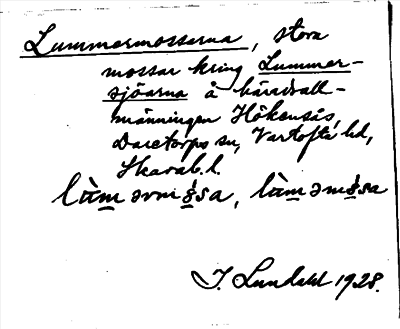 Lummermossarna, stora
mossar kring Lummer-
sjöarna å häradsall-
männingen Hökensås,
Daretorps sn, Vartofta hd,
Skarab. l.
lùmərmɔsa, lùməmɔsa
J. Lundahl 1928.